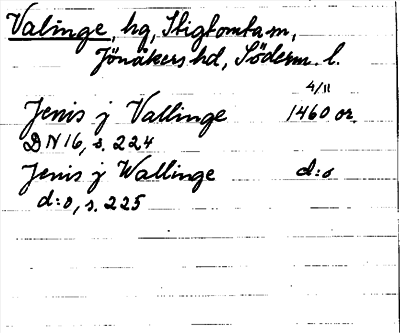 Valinge, hg, Stigtomta sn,
Jönåkers hd, Söderm. l.
4/11
Jenis j Vallinge 1460 or.
DN 16, s. 224
Jenis j Wallinge d:o
d:o, s. 225